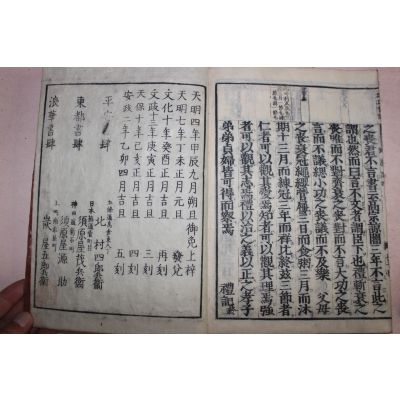 之喪不言者云高宗諒闇三年不言此之
謂也然而曰言不文者謂臣下也禮斬衰之
喪唯而不對齊衰之喪對而不言大功之喪
言而不議緦小功之喪議而不及樂 父母
之喪衰冠繩纓菅屨三日而食粥三月而沐
期十三月而練冠三年而祥比終茲三節者
仁者可以觀其愛焉知者可以觀其理焉強
者可以觀其志焉禮以治之義以正之孝子
弟弟貞婦皆可得而察焉
禮記終
天明四年甲辰九月朔旦御免上梓
天明七年丁未正月元旦 發兌
文化十年癸酉正月吉旦 再刻
文政十三年庚寅正月吉旦 三刻
天保十年己亥正月吉旦 四刻
安政二年乙卯四月吉旦 五刻
北村四郎兵衛
東都書肆
須原屋茂兵衛
須原屋源助
浪華書肆
屋五郎兵衛